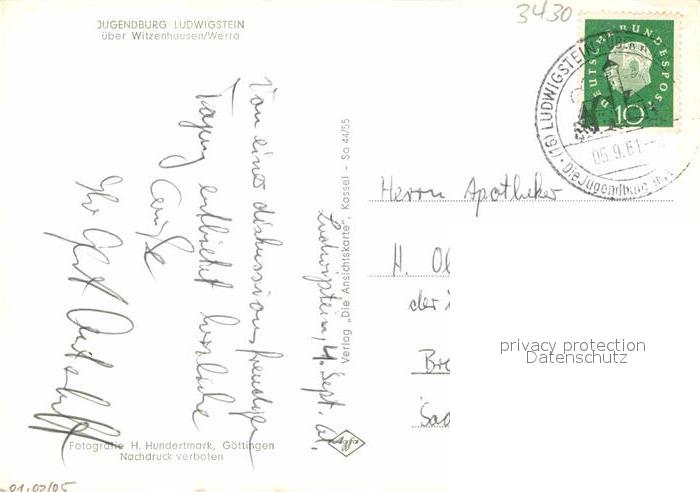 JUGENDBURG LUDWIGSTEIN
über Witzenhausen/Werra
3430
DEUTSCHE BUNDESPOST
10
(16) LUDWIGSTEIN ÜBER
05.9.61
Die Jugendburg
Ludwigstein, 4. Sept. 61.
Von einer diskussionsfreudigen
Tagung entbietet herzliche
Grüße
Ihr
Verlag „Die Ansichtskarte", Kassel - So 44/55
Herrn Apotheker
H. Ol
der
Bre
Sao
privacy protection
Datenschutz
Agfa
Fotografie H. Hundertmark, Göttingen
Nachdruck verboten
01.02/05